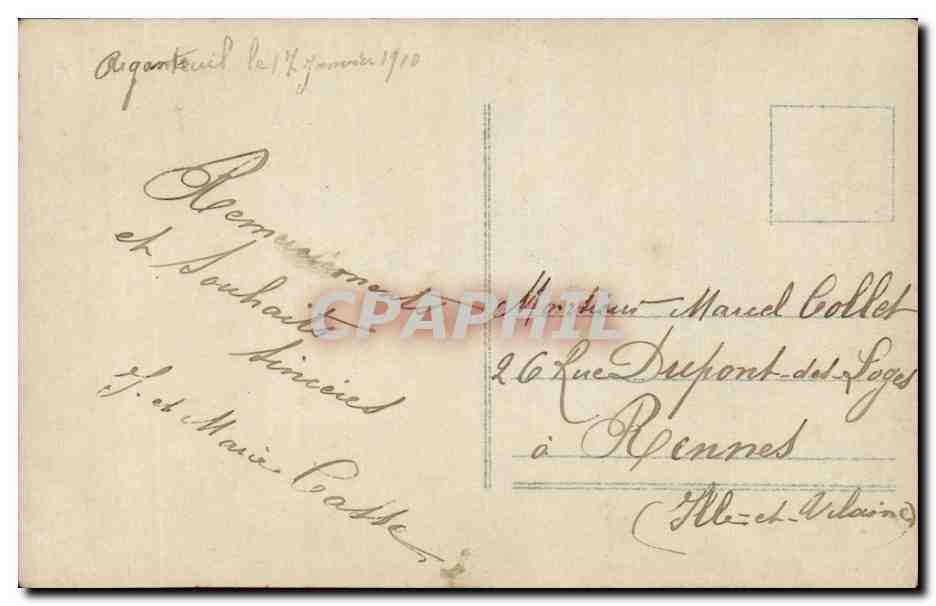 Argenteuil le 17 Janvier 1910
Remerciements
et Souhaits
sincères
J. et Marie Casse
Monsieur Marcel Collet
26 Rue Dupont-des-Loges
à Rennes
(Ille-et-Vilaine)
CPAPHIL